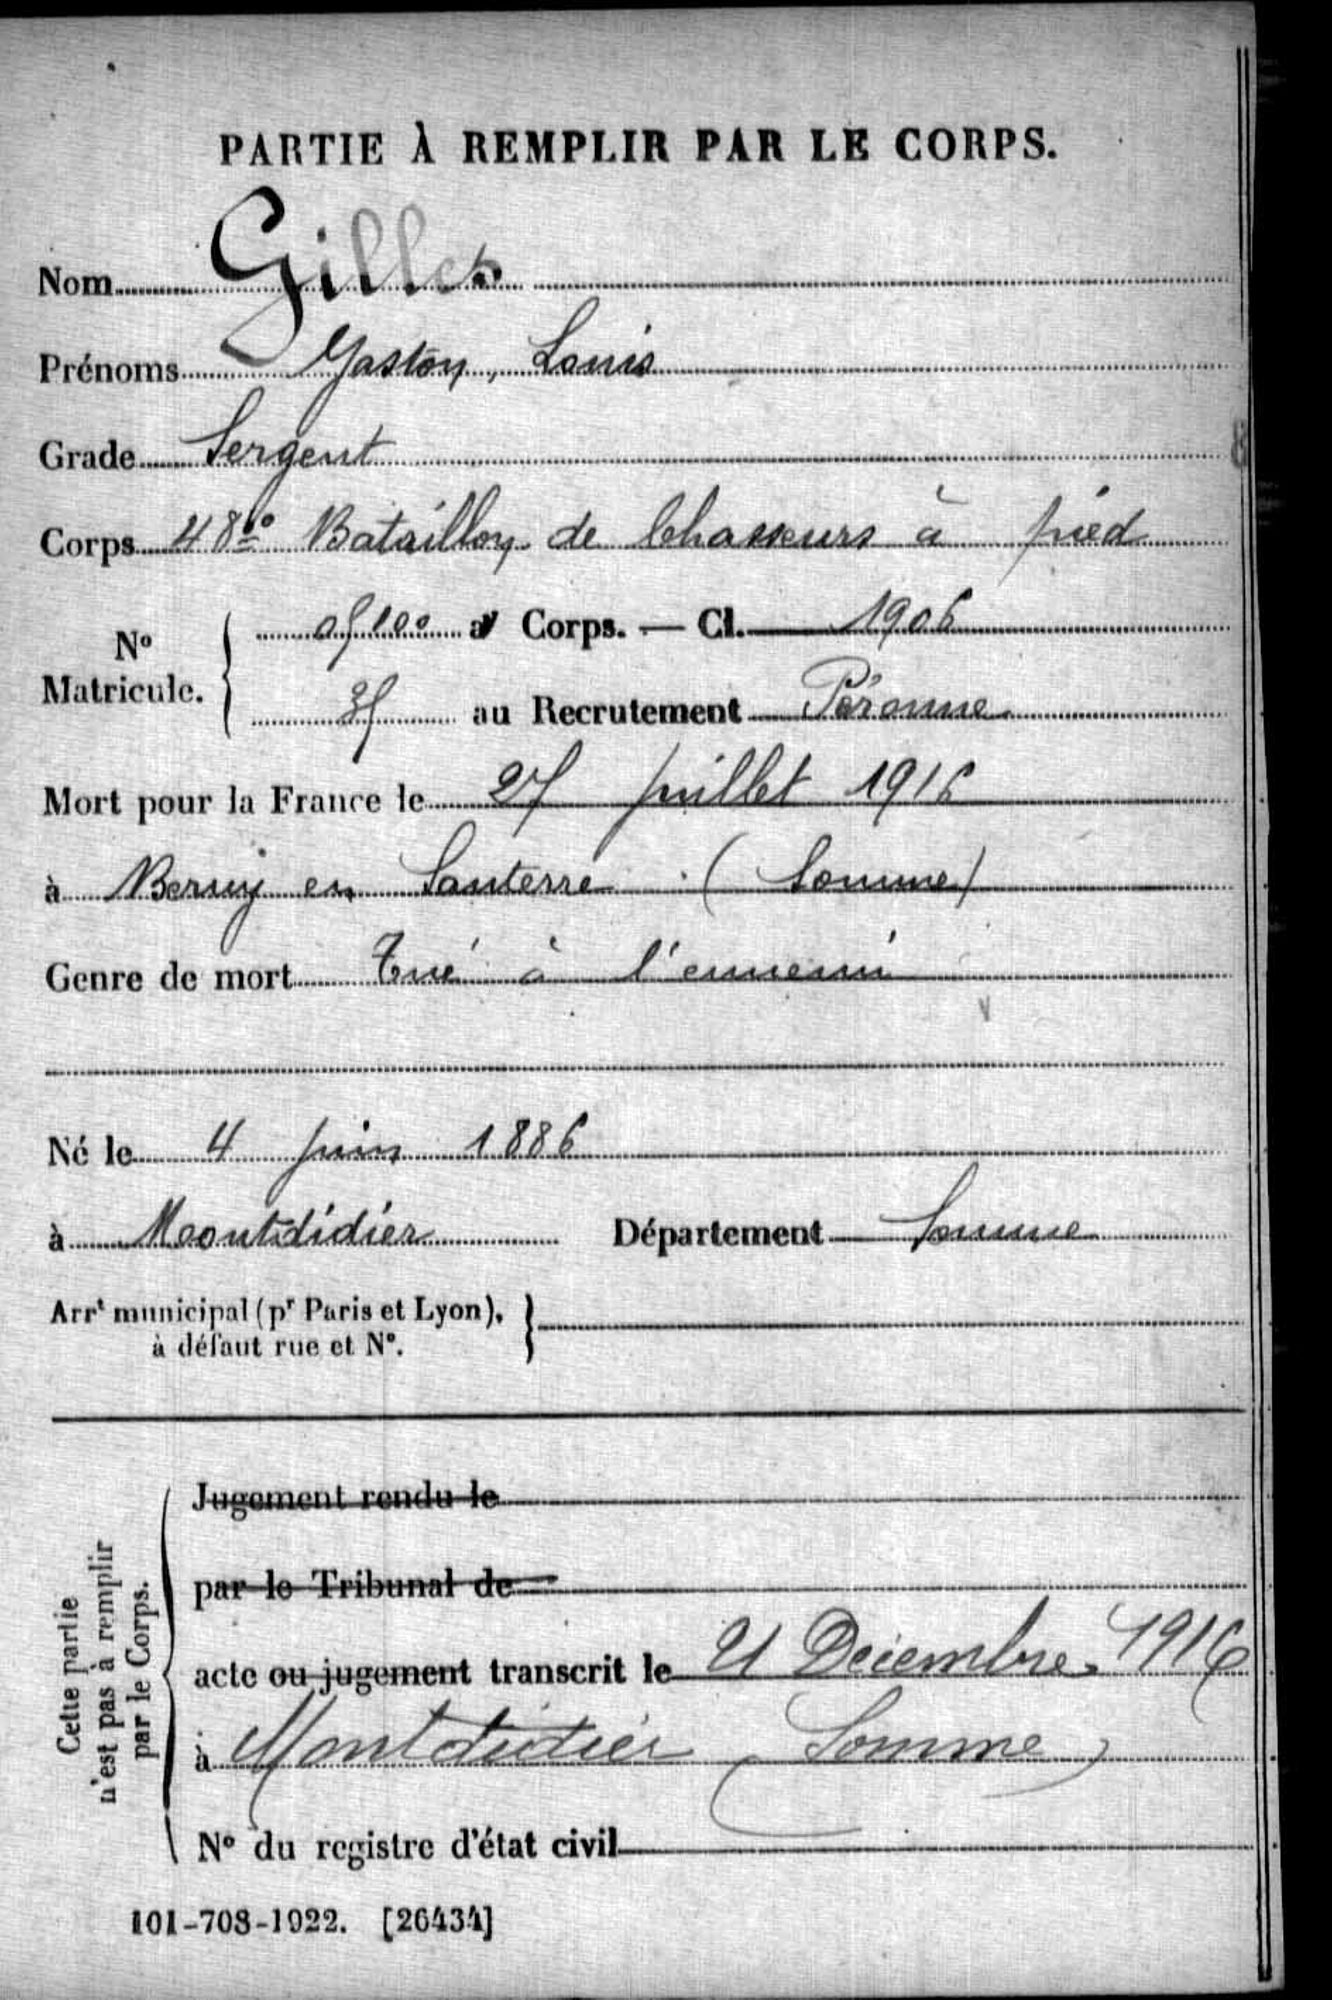 PARTIE À REMPLIR PAR LE CORPS.
Nom Gilles
Prénoms Gaston, Louis
Grade Sergent
Corps 48e Bataillon de Chasseurs à pied
N° Matricule. { au Corps. — Cl. 1906
au Recrutement Péronne
Mort pour la France le 27 juillet 1916
à Berny en Santerre (Somme)
Genre de mort Tué à l'ennemi
Né le 4 juin 1886
à Montdidier Département Somme
Arrt municipal (pr Paris et Lyon), }
à défaut rue et N°.
Cette partie n'est pas à remplir par le Corps.
Jugement rendu le
par le Tribunal de
acte ou jugement transcrit le 21 Décembre 1916
à Montdidier (Somme)
N° du registre d'état civil
101-708-1922. [26434]